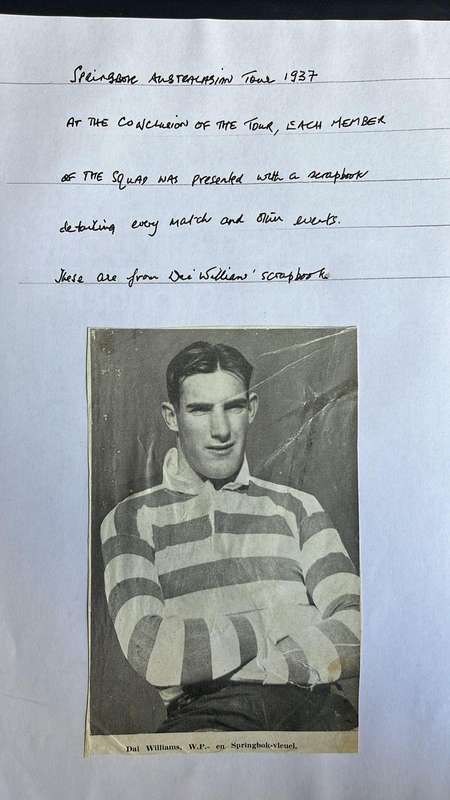 SPRINGBOK AUSTRALASIAN TOUR 1937
AT THE CONCLUSION OF THE TOUR, EACH MEMBER
OF THE SQUAD WAS presented with a scrapbook
detailing every match and other events.
These are from Dai Williams' scrapbook
Dai Williams, W.P.- en Springbok-vleuel.